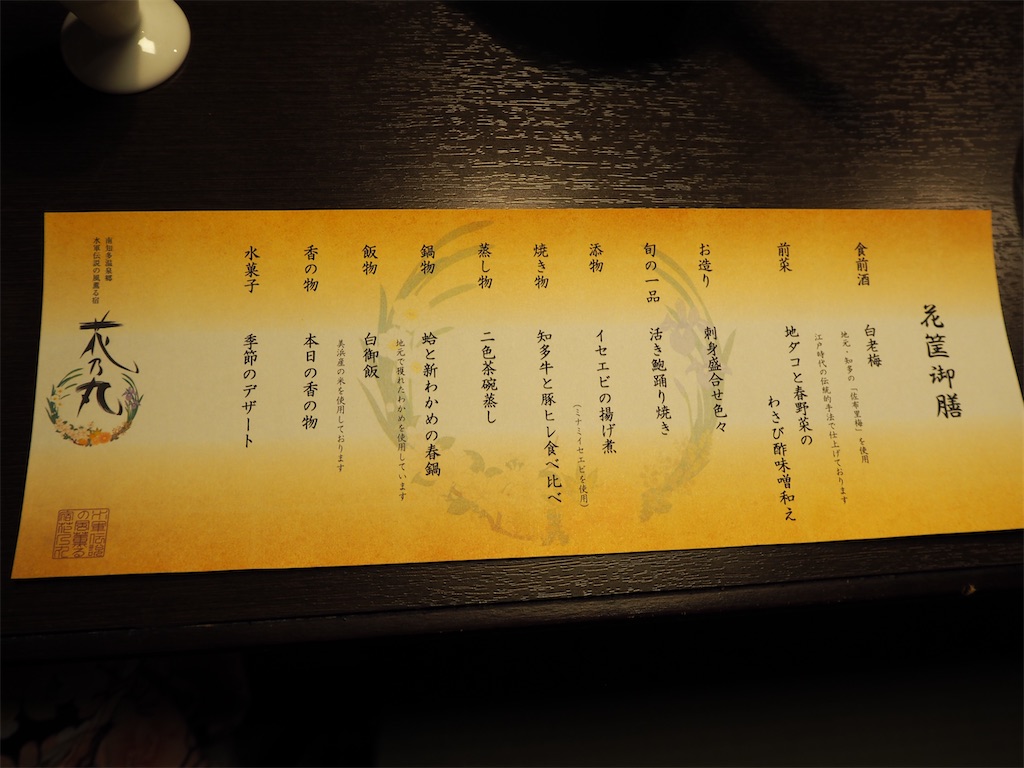 花筐御膳
食前酒
白老梅
地元・知多の「佐布里梅」を使用
江戸時代の伝統的手法で仕上げております
前菜
地ダコと春野菜の
わさび酢味噌和え
お造り
刺身盛合せ色々
旬の一品
活き鮑踊り焼き
添物
イセエビの揚げ煮
(ミナミイセエビを使用)
焼き物
知多牛と豚ヒレ食べ比べ
蒸し物
二色茶碗蒸し
鍋物
蛤と新わかめの春鍋
地元で穫れたわかめを使用しています
飯物
白御飯
美浜産の米を使用しております
香の物
本日の香の物
水菓子
季節のデザート
南知多温泉郷
水軍伝説の風薫る宿
花乃丸